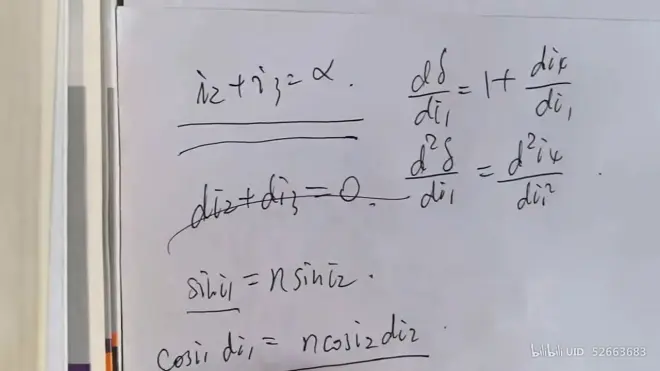 i₂+i₃=α.
dδ/di₁=1+di₄/di₁
di₂+di₃=0.
d²δ/di₁=d²i₄/di₁².
sini₁=nsini₂.
cosi₁di₁=ncosi₂di₂.
bilibili UID 52663683